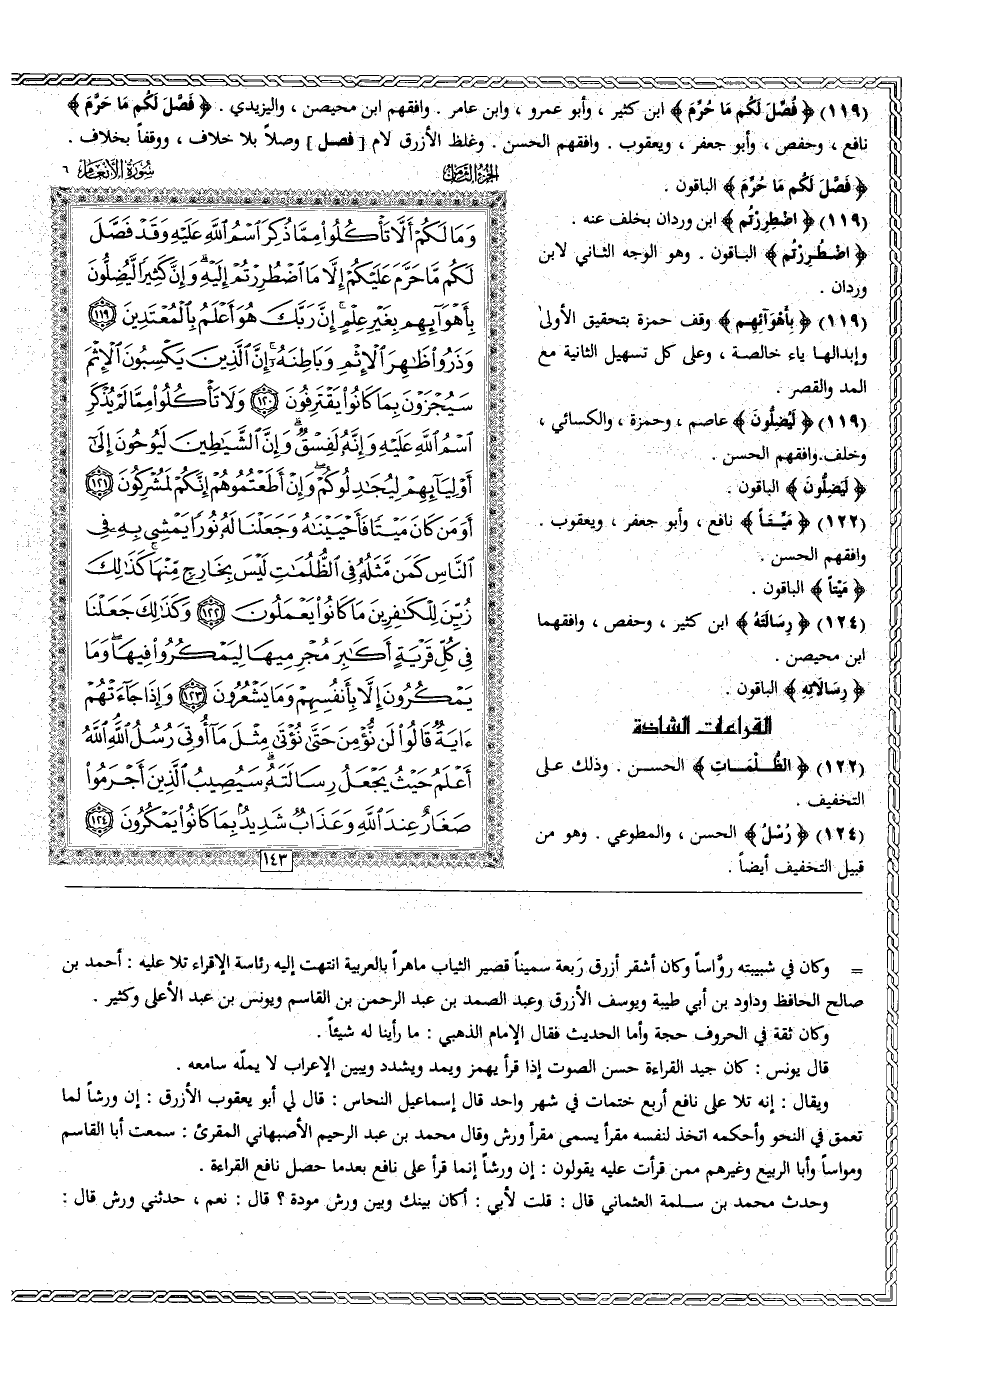 (١١٩) ﴿ فُصِّلَ لَكُم مَا حُرِّمَ ﴾ ابن كثير ، وأبو عمرو ، وابن عامر . وافقهم ابن محيصن ، واليزيدي . ﴿ فَصَّلَ لَكُم مَا حَرَّمَ ﴾
نافع ، وحفص ، وأبو جعفر ، ويعقوب . وافقهم الحسن . وغلظ الأزرق لام [ فصل ] وصلاً بلا خلاف ، ووقفاً بخلاف .
﴿ فَصَّلَ لَكُم مَا حُرِّمَ ﴾ الباقون .
(١١٩) ﴿ اضْطِرِرْتُم ﴾ ابن وردان بخلف عنه .
﴿ اضْطُرِرْتُم ﴾ الباقون . وهو الوجه الثاني لابن
وردان .
(١١٩) ﴿ بِأَهْوَآئِهِم ﴾ وقف حمزة بتحقيق الأولى
وإبدالها ياء خالصة ، وعلى كل تسهيل الثانية مع
المد والقصر .
(١١٩) ﴿ لَيُضِلُّونَ ﴾ عاصم ، وحمزة ، والكسائي ،
وخلف.وافقهم الحسن .
﴿ لَيَضِلُّونَ ﴾ الباقون .
(١٢٢) ﴿ مَيِّتاً ﴾ نافع ، وأبو جعفر ، ويعقوب .
وافقهم الحسن .
﴿ مَيْتاً ﴾ الباقون .
(١٢٤) ﴿ رِسَالَتَهُ ﴾ ابن كثير ، وحفص ، وافقهما
ابن محيصن .
﴿ رِسَالاَتِهِ ﴾ الباقون .
القراءات الشاذة
(١٢٢) ﴿ الظُّلْمَاتِ ﴾ الحسن . وذلك على
التخفيف .
(١٢٤) ﴿ رُسْلُ ﴾ الحسن ، والمطوعي . وهو من
قبيل التخفيف أيضاً .
الجزء الثامن سورة الأنعام ٦
وَمَا لَكُمْ أَلَّا تَأْكُلُوا۟ مِمَّا ذُكِرَ ٱسْمُ ٱللَّهِ عَلَيْهِ وَقَدْ فَصَّلَ
لَكُم مَّا حَرَّمَ عَلَيْكُمْ إِلَّا مَا ٱضْطُرِرْتُمْ إِلَيْهِ ۗ وَإِنَّ كَثِيرًا لَّيُضِلُّونَ
بِأَهْوَآئِهِم بِغَيْرِ عِلْمٍ ۗ إِنَّ رَبَّكَ هُوَ أَعْلَمُ بِٱلْمُعْتَدِينَ ١١٩
وَذَرُوا۟ ظَـٰهِرَ ٱلْإِثْمِ وَبَاطِنَهُۥٓ ۚ إِنَّ ٱلَّذِينَ يَكْسِبُونَ ٱلْإِثْمَ
سَيُجْزَوْنَ بِمَا كَانُوا۟ يَقْتَرِفُونَ ١٢٠ وَلَا تَأْكُلُوا۟ مِمَّا لَمْ يُذْكَرِ
ٱسْمُ ٱللَّهِ عَلَيْهِ وَإِنَّهُۥ لَفِسْقٌ ۗ وَإِنَّ ٱلشَّيَـٰطِينَ لَيُوحُونَ إِلَىٰٓ
أَوْلِيَآئِهِمْ لِيُجَـٰدِلُوكُمْ ۖ وَإِنْ أَطَعْتُمُوهُمْ إِنَّكُمْ لَمُشْرِكُونَ ١٢١
أَوَمَن كَانَ مَيْتًا فَأَحْيَيْنَـٰهُ وَجَعَلْنَا لَهُۥ نُورًا يَمْشِى بِهِۦ فِى
ٱلنَّاسِ كَمَن مَّثَلُهُۥ فِى ٱلظُّلُمَـٰتِ لَيْسَ بِخَارِجٍ مِّنْهَا ۚ كَذَٰلِكَ
زُيِّنَ لِلْكَـٰفِرِينَ مَا كَانُوا۟ يَعْمَلُونَ ١٢٢ وَكَذَٰلِكَ جَعَلْنَا
فِى كُلِّ قَرْيَةٍ أَكَـٰبِرَ مُجْرِمِيهَا لِيَمْكُرُوا۟ فِيهَا ۖ وَمَا
يَمْكُرُونَ إِلَّا بِأَنفُسِهِمْ وَمَا يَشْعُرُونَ ١٢٣ وَإِذَا جَآءَتْهُمْ
ءَايَةٌ قَالُوا۟ لَن نُّؤْمِنَ حَتَّىٰ نُؤْتَىٰ مِثْلَ مَآ أُوتِىَ رُسُلُ ٱللَّهِ ۘ ٱللَّهُ
أَعْلَمُ حَيْثُ يَجْعَلُ رِسَالَتَهُۥ ۗ سَيُصِيبُ ٱلَّذِينَ أَجْرَمُوا۟
صَغَارٌ عِندَ ٱللَّهِ وَعَذَابٌ شَدِيدٌۢ بِمَا كَانُوا۟ يَمْكُرُونَ ١٢٤
١٤٣
= وكان في شبيبته روَّاساً وكان أشقر أزرق رَبعة سميناً قصير الثياب ماهراً بالعربية انتهت إليه رئاسة الإقراء تلا عليه : أحمد بن
صالح الحافظ وداود بن أبي طيبة ويوسف الأزرق وعبد الصمد بن عبد الرحمن بن القاسم ويونس بن عبد الأعلى وكثير .
وكان ثقة في الحروف حجة وأما الحديث فقال الإمام الذهبي : ما رأينا له شيئاً .
قال يونس : كان جيد القراءة حسن الصوت إذا قرأ يهمز ويمد ويشدد ويبين الإعراب لا يملّه سامعه .
ويقال : إنه تلا على نافع أربع ختمات في شهر واحد قال إسماعيل النحاس : قال لي أبو يعقوب الأزرق : إن ورشاً لما
تعمق في النحو وأحكمه اتخذ لنفسه مقرأ يسمى مقرأ ورش وقال محمد بن عبد الرحيم الأصبهاني المقرئ : سمعت أبا القاسم
ومواساً وأبا الربيع وغيرهم ممن قرأت عليه يقولون : إن ورشاً إنما قرأ على نافع بعدما حصل نافع القراءة .
وحدث محمد بن سلمة العثماني قال : قلت لأبي : أكان بينك وبين ورش مودة ؟ قال : نعم ، حدثني ورش قال :